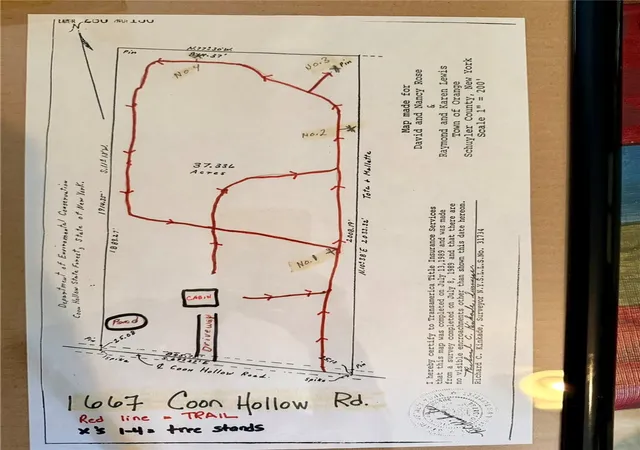 Pin
N 77°36'W
No. 4
No. 3
Pin
No. 2
37.336
Acres
No. 1
Department of Environmental Conservation
Coon Hollow State Forest, State of New York.
Toto & Mallette
2008.19'
CABIN
DRIVEWAY
Pond
Pin
Pin
Spike
Spike
Coon Hollow Road.
1667 Coon Hollow Rd.
Red line = TRAIL
X's 1-4 = tree stands
Map made for
David and Nancy Rose
&
Raymond and Karen Lewis
Town of Orange
Schuyler County, New York
Scale 1" = 200'
I hereby certify to Transamerica Title Insurance Services
that this map was completed on July 13, 1989 and was made
from a survey completed on July 8, 1989 and that there are
no visible encroachments other than shown this date hereon.
Richard C. Kinkade, Surveyor N.Y.S.L.L.S.No. 31714